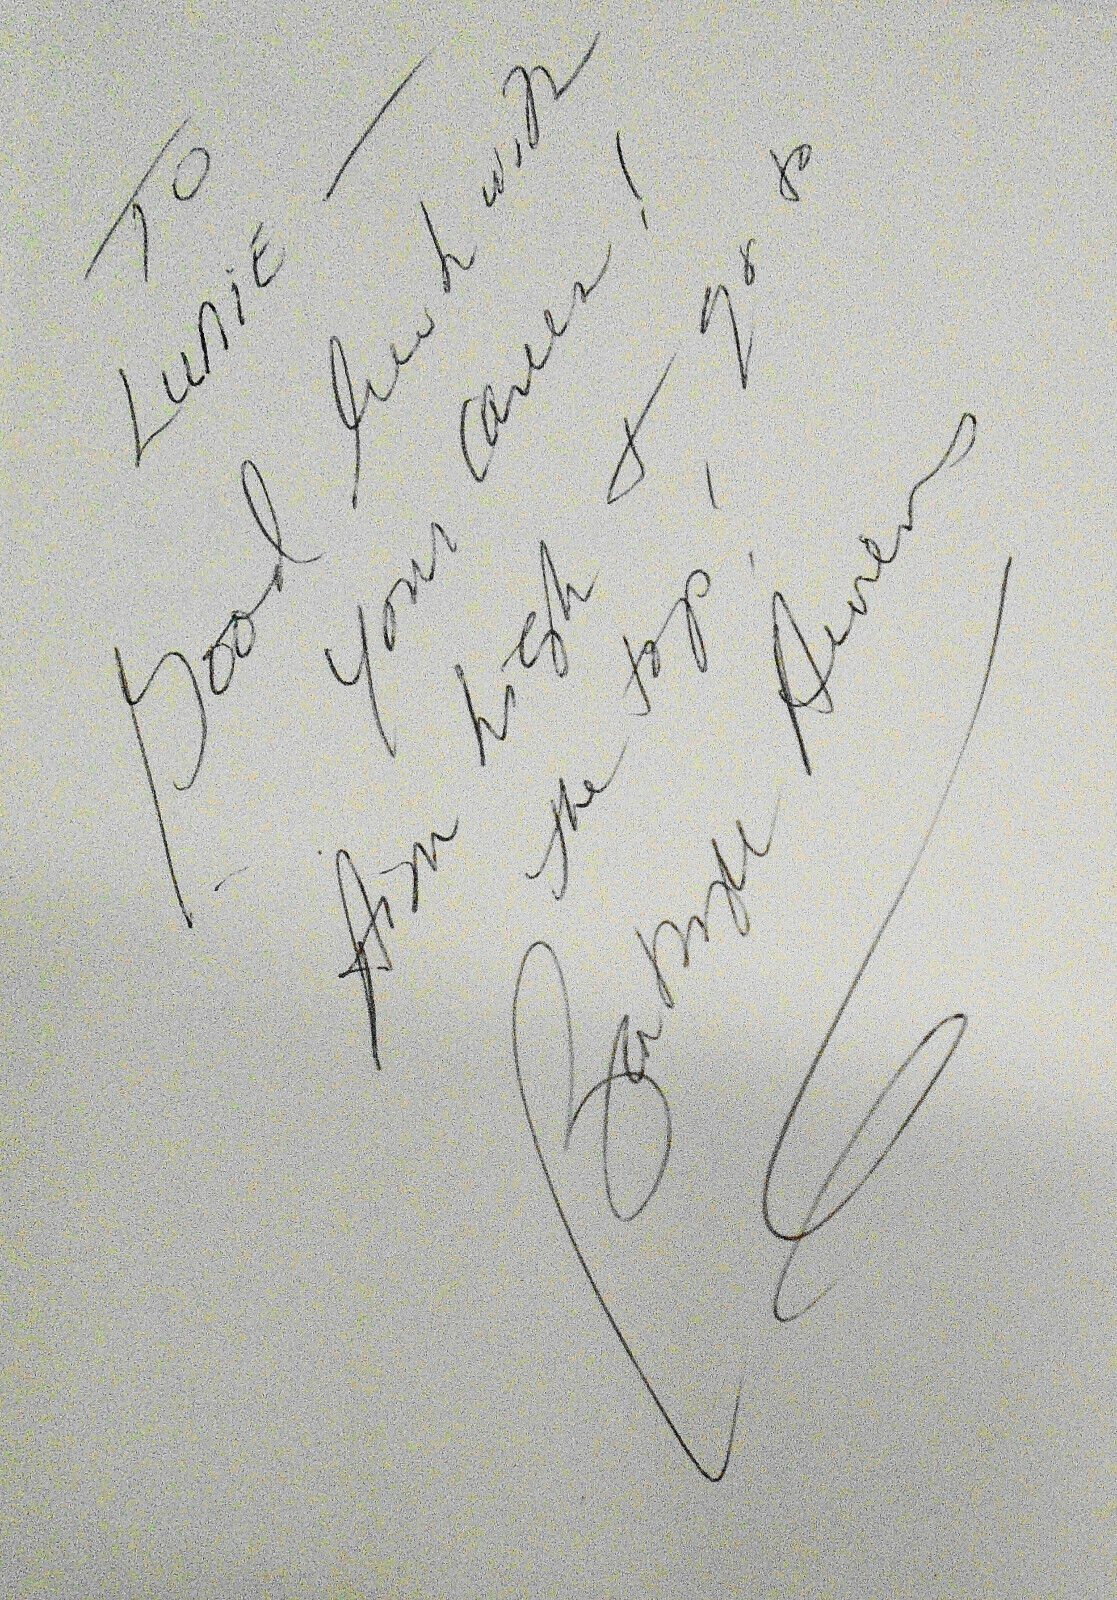 TO
LUNIE —
Good Luck with
your career!
Aim high & go to
the top!